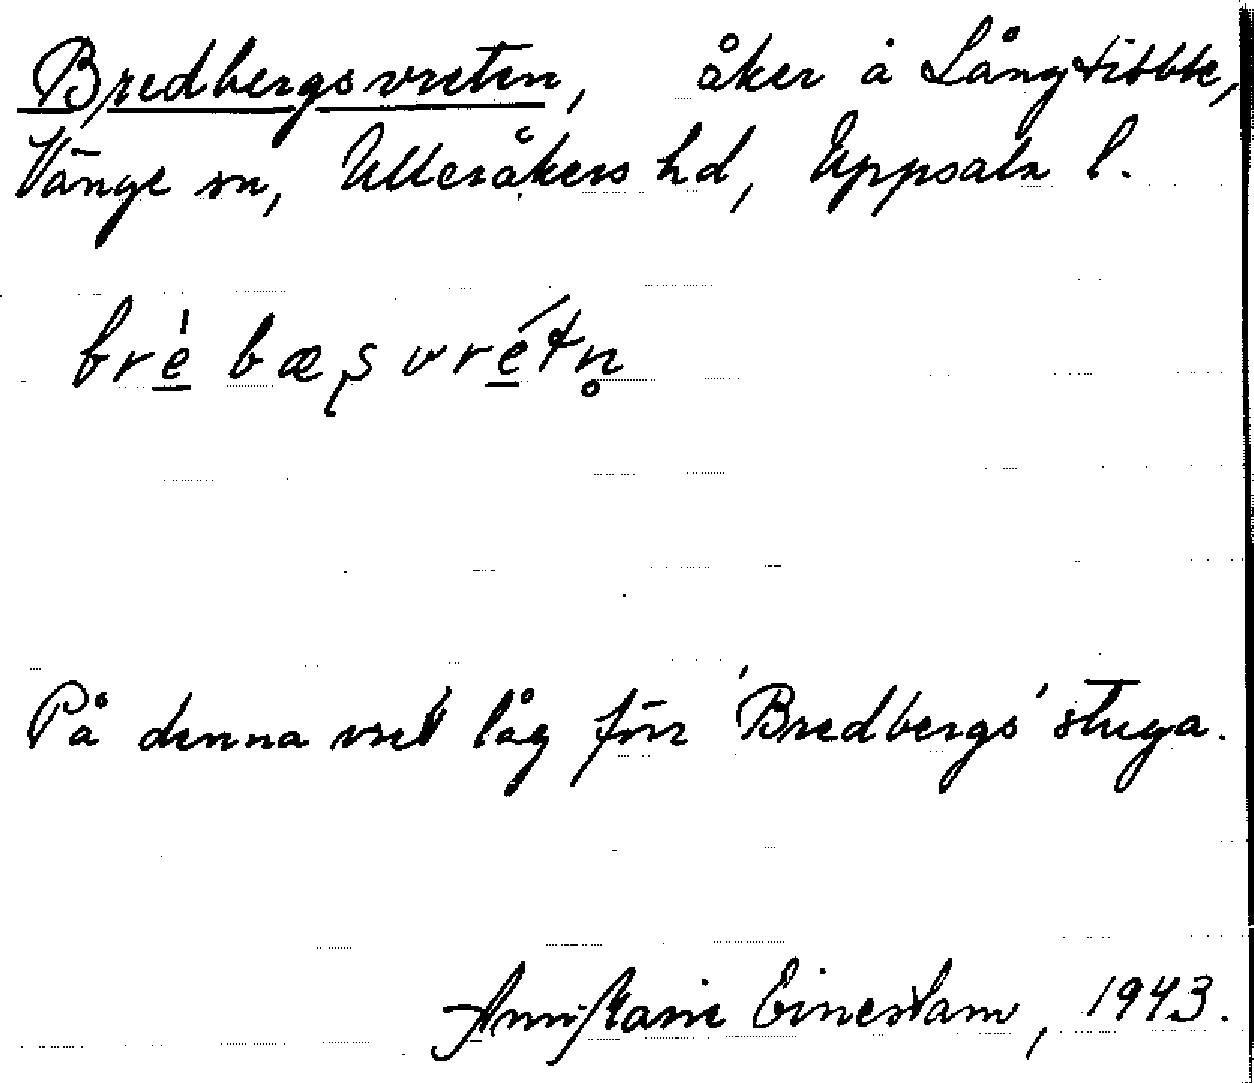 Bredbergsvreten, åker å Långtibble,
Vänge sn, Ulleråkers hd, Uppsala l.
brè̱ bæʂ vré̱tn̥
På denna vret låg förr 'Bredbergs' stuga.
Ann-Marie Einerstam, 1943.